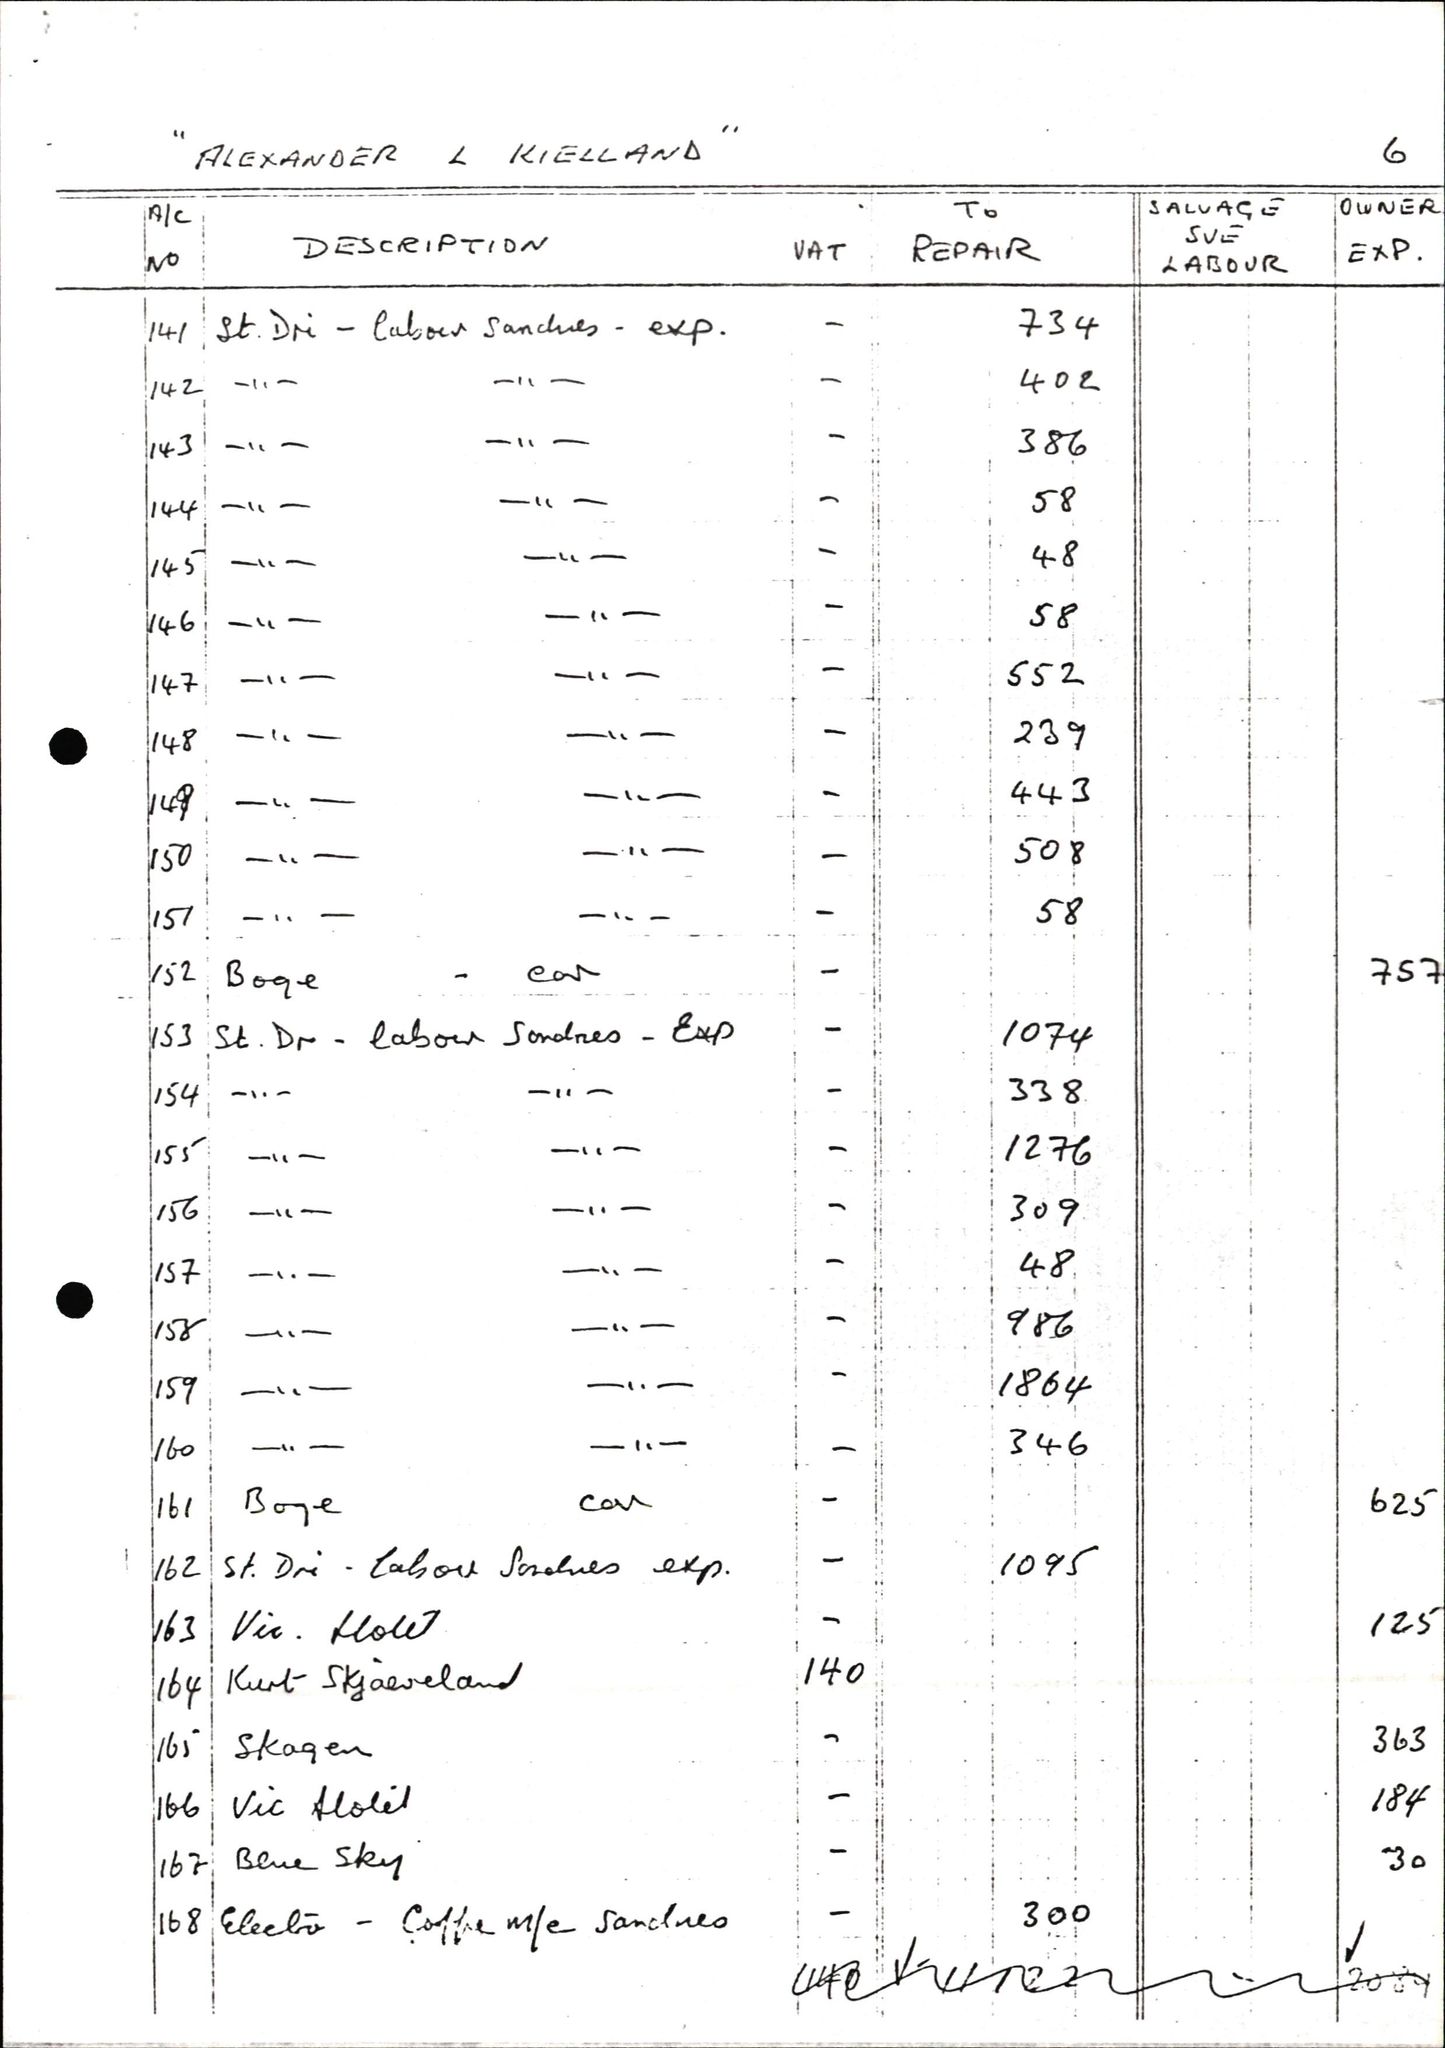 "ALEXANDER L KIELLAND" 6
A/C NO DESCRIPTION VAT TO REPAIR SALVAGE SUE LABOUR OWNER EXP.
141 St. Dri - labour Sandnes - exp. - 734
142 -"- -"- - 402
143 -"- -"- - 386
144 -"- -"- - 58
145 -"- -"- - 48
146 -"- -"- - 58
147 -"- -"- - 552
148 -"- -"- - 239
149 -"- -"- - 443
150 -"- -"- - 508
151 -"- -"- - 58
152 Boge - car - 757
153 St. Dri - labour Sandnes - Exp - 1074
154 -"- -"- - 338
155 -"- -"- - 1276
156 -"- -"- - 309
157 -"- -"- - 48
158 -"- -"- - 986
159 -"- -"- - 1864
160 -"- -"- - 346
161 Boge car - 625
162 St. Dri - labour Sandnes exp. - 1095
163 Vic. Hotel - 125
164 Kurt Skjaeveland 140
165 Skagen - 363
166 Vic Hotel - 184
167 Blue Sky - 30
168 Electro - Coffe m/c Sandnes - 300
140 2084